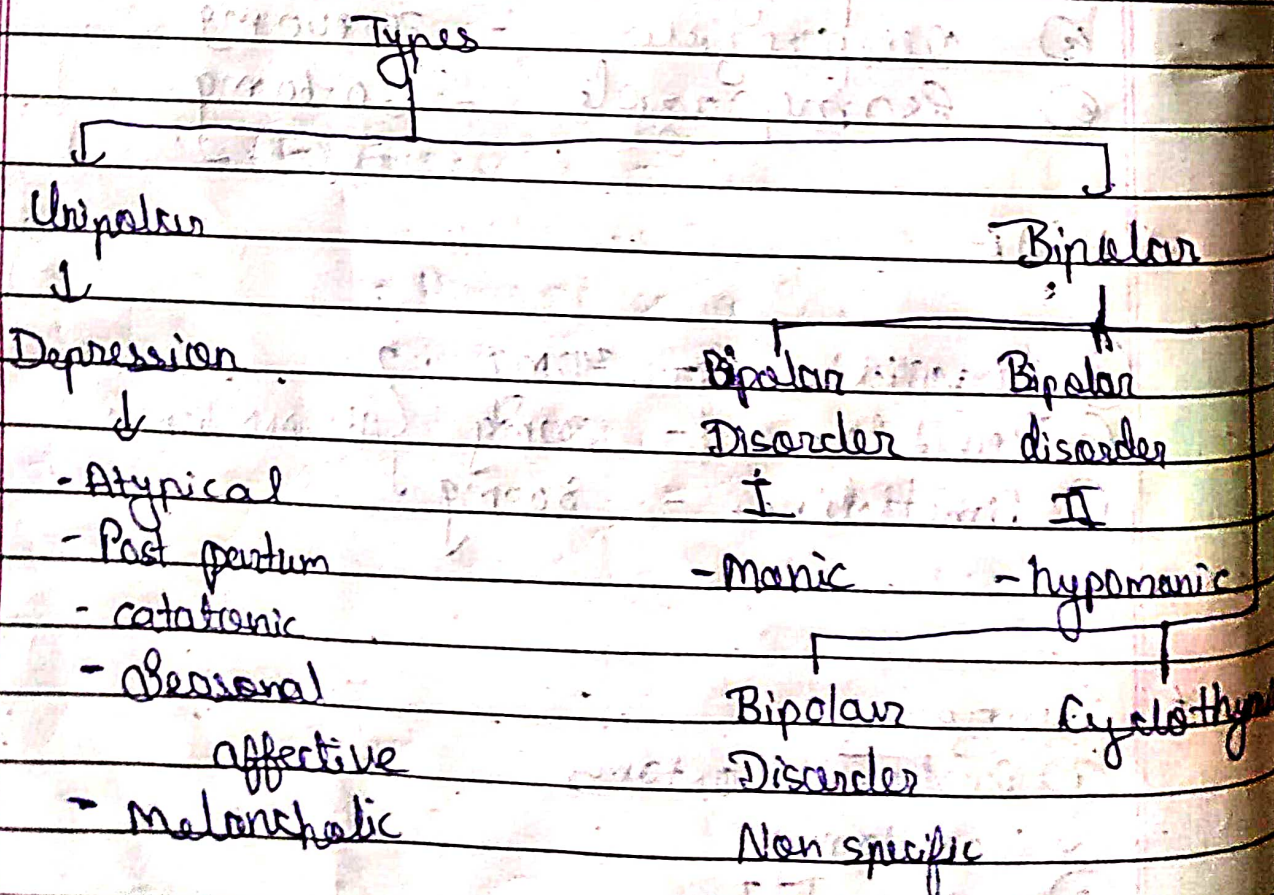 Types
Unipolar
Bipolar
Depression
- Atypical
- Post partum
- catatonic
- Seasonal
affective
- Melancholic
- Bipolar
Disorder
I
- Manic
Bipolar
disorder
II
- hypomanic
Bipolar
Disorder
Non specific
Cyclothym